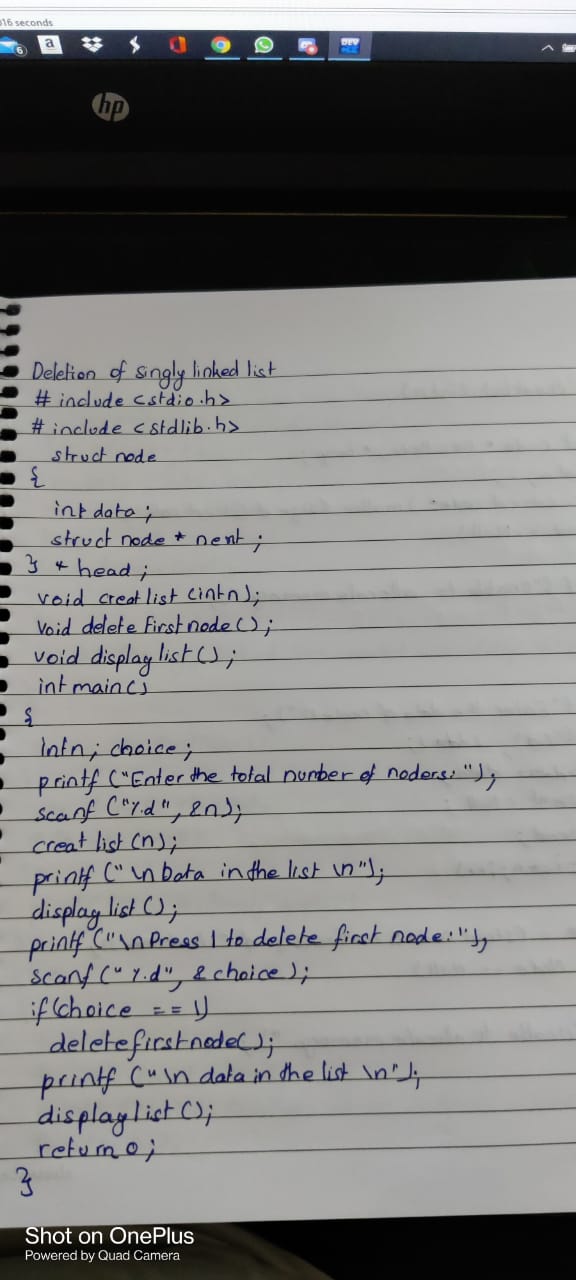 016 seconds
6
a
DEV
hp
Deletion of singly linked list
# include <stdio.h>
# include <stdlib.h>
struct node
{
int data ;
struct node * next ;
} * head ;
void creat list (intn);
void delete first node ( ) ;
void display list ( ) ;
int main ( )
{
intn ; choice ;
printf ("Enter the total number of noders: ");
scanf ("%d", &n);
creat list (n);
printf (" \n bata in the list \n");
display list ( ) ;
printf ("\n Press 1 to delete first node:");
scanf (" %d", & choice );
if (choice == 1)
delete first node ( ) ;
printf (" \n data in the list \n");
display list ( ) ;
return 0 ;
}
Shot on OnePlus
Powered by Quad Camera